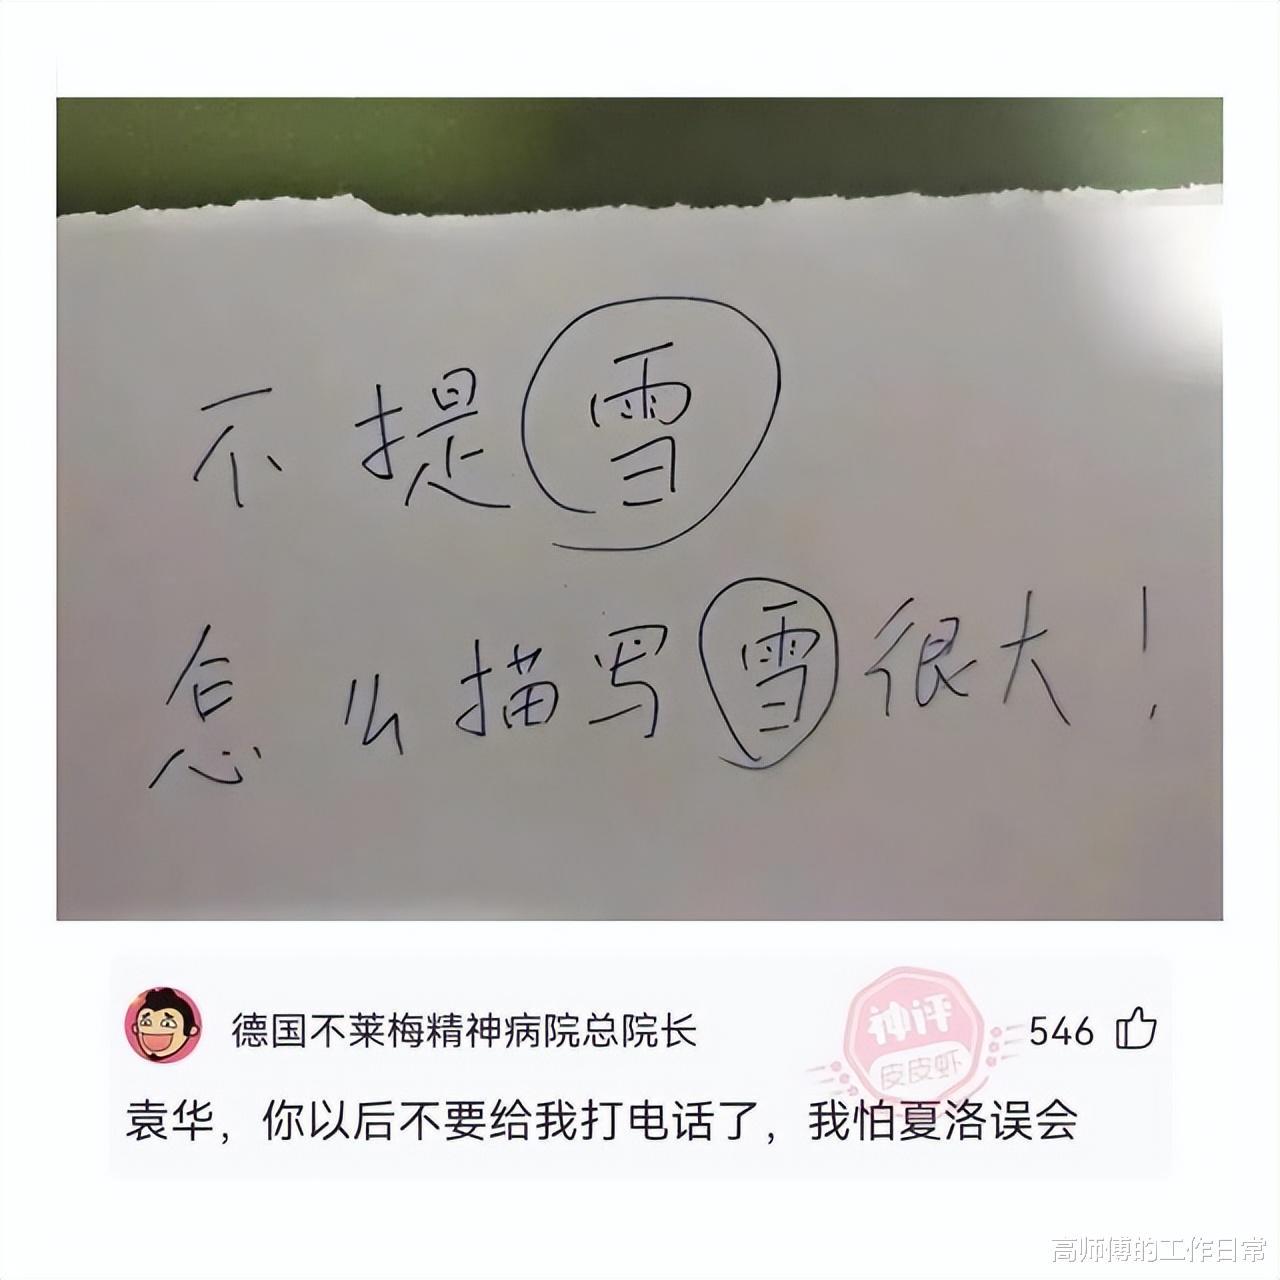 不提雪
怎么描写雪很大！
德国不莱梅精神病院总院长
神评
皮皮虾
546
袁华，你以后不要给我打电话了，我怕夏洛误会
高师傅的工作日常